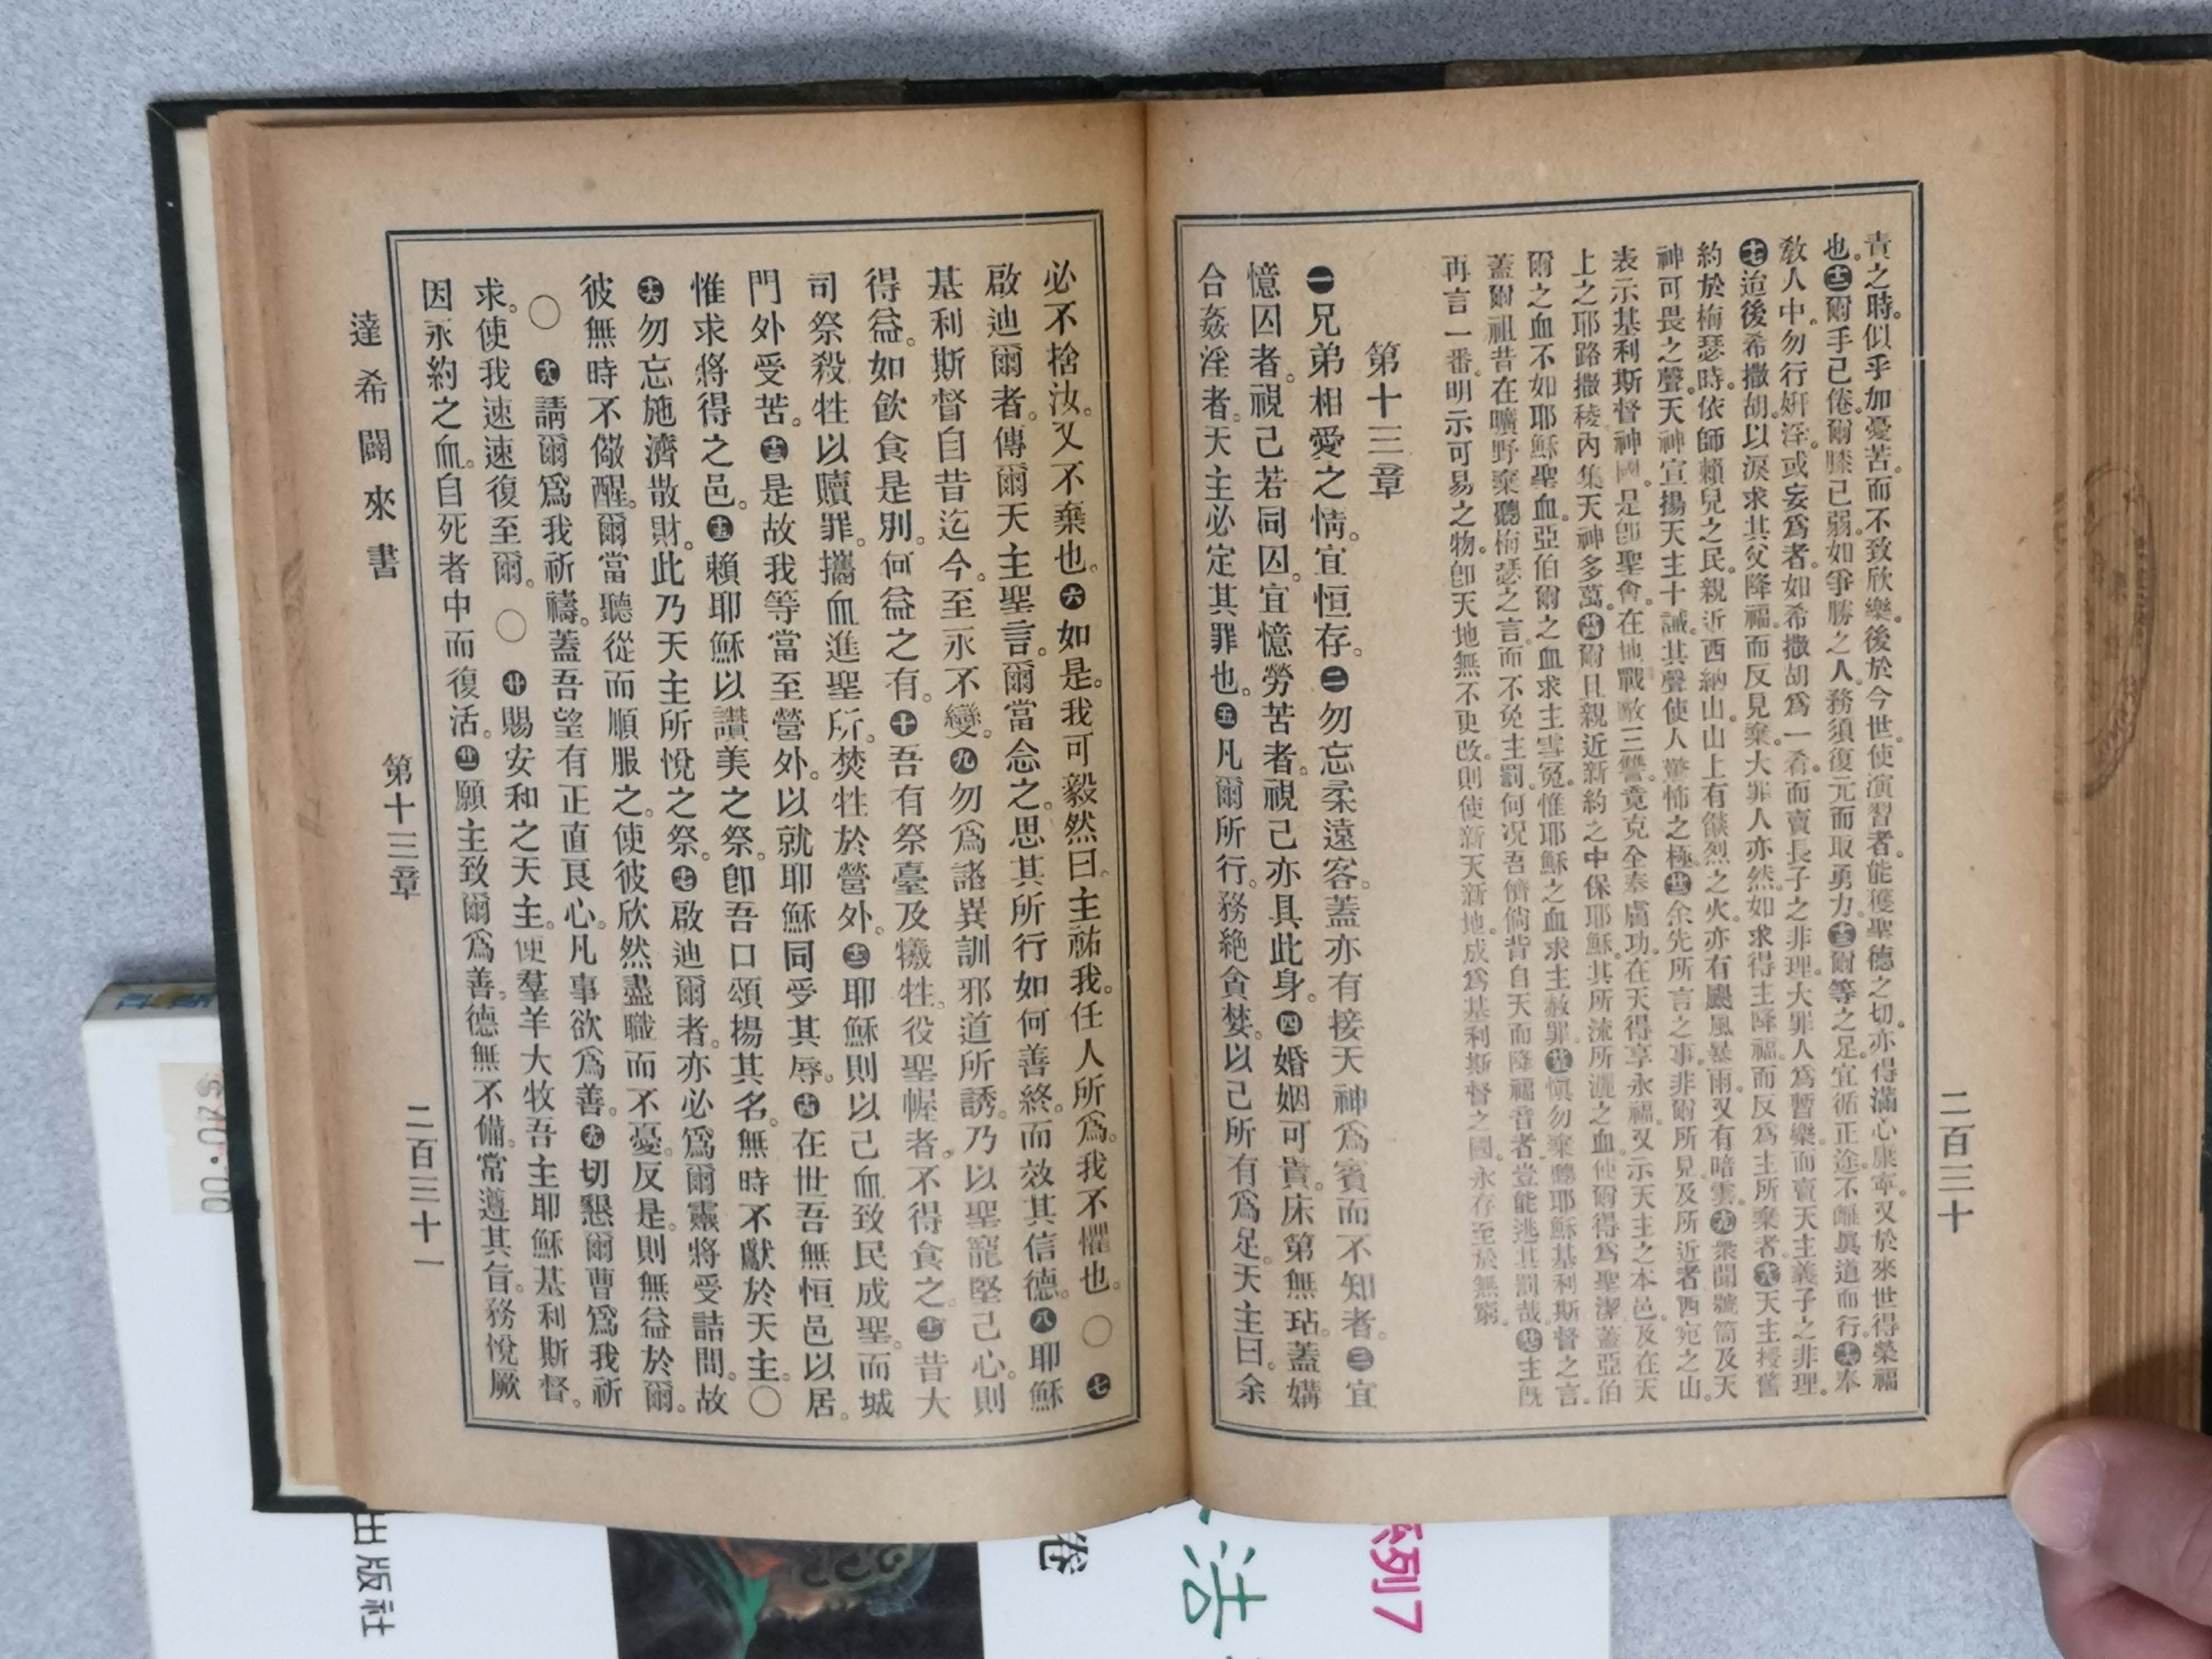 二百三十
責之時。似乎加憂苦。而不致欣樂。後於今世。使演習者。能獲聖德之切。亦得滿心康寧。又於來世得榮福
也。十二爾手已倦。爾膝已弱。如爭勝之人。務須復元而取勇力。十三爾等之足。宜循正途。不離眞道而行。十六奉
敎人中。勿行姧淫。或妄爲者。如希撒胡爲一肴。而賣長子之非理。大罪人爲暫樂。而賣天主義子之非理。
十七迨後希撒胡。以淚求其父降福。而反見棄。大罪人亦然。如求得主降福。而反爲主所棄者。十八天主授舊
約於梅瑟時。依師賴兒之民。親近西納山。山上有燄烈之火。亦有颶風暴雨。又有暗雲。十九衆聞號筒及天
神可畏之聲。天神宣揚天主十誡。其聲使人驚怖之極。余先所言之事。非爾所見及所近者西宛之山。
表示基利斯督神國。是卽聖會。在地戰敵三讐。竟克全奉膚功。在天得享永福。又示天主之本邑。及在天
上之耶路撒稜內集天神多萬。廿四爾且親近新約之中保耶穌。其所流所灑之血。使爾得爲聖潔。蓋亞伯
爾之血不如耶穌聖血。亞伯爾之血求主雪冤。惟耶穌之血求主赦罪。廿五愼勿棄聽耶穌基利斯督之言。
蓋爾祖昔在曠野棄聽梅瑟之言。而不免主罰。何况吾儕倘背自天而降福音者。豈能逃其罰哉。廿七主旣
再言一番。明示可易之物。卽天地無不更改。則使新天新地。成爲基利斯督之國。永存至於無窮。
第十三章
一兄弟相愛之情。宜恒存。二勿忘柔遠客。蓋亦有接天神爲賓而不知者。三宜
憶囚者。視己若同囚。宜憶勞苦者。視己亦具此身。四婚姻可貴。床第無玷。蓋媾
合姦淫者。天主必定其罪也。五凡爾所行。務絕貪婪。以己所有爲足。天主曰。余
必不捨汝。又不棄也。六如是。我可毅然曰。主祐我。任人所爲。我不懼也。〇七
啟迪爾者。傳爾天主聖言。爾當念之。思其所行如何善終。而效其信德。八耶穌
基利斯督自昔迄今。至永不變。九勿爲諸異訓邪道所誘。乃以聖寵堅己心。則
得益。如飮食是別。何益之有。十吾有祭臺及犧牲。役聖幄者。不得食之。十一昔大
司祭殺牲以贖罪。攜血進聖所。焚牲於營外。十二耶穌則以己血致民成聖。而城
門外受苦。十三是故我等當至營外。以就耶穌同受其辱。十四在世吾無恒邑以居。
惟求將得之邑。十五賴耶穌以讚美之祭。卽吾口頌揚其名。無時不獻於天主。〇
十六勿忘施濟散財。此乃天主所悅之祭。十七啟迪爾者。亦必爲爾靈將受詰問。故
彼無時不儆醒。爾當聽從而順服之。使彼欣然盡職而不憂。反是。則無益於爾。
〇十八請爾爲我祈禱。蓋吾望有正直良心。凡事欲爲善。十九切懇爾曹爲我祈
求。使我速速復至爾。〇廿賜安和之天主。使羣羊大牧吾主耶穌基利斯督。
因永約之血。自死者中而復活。廿一願主致爾爲善。德無不備。常遵其旨。務悅厥
達希闢來書 第十三章 二百三十一
出版社
卷
活
系列7